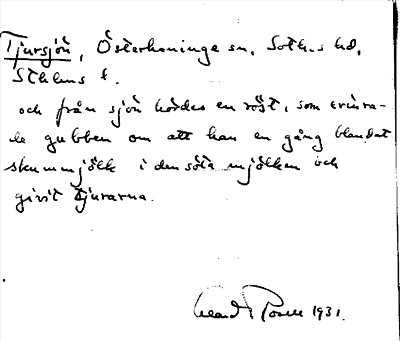 Tjursjön, Österhaninge sn, Soth.s hd,
Sthlms l.
och från sjön hördes en röst, som erinra-
de gubben om att han en gång blandat
skummjölk i den söta mjölken och
givit tjurarna.
1931.